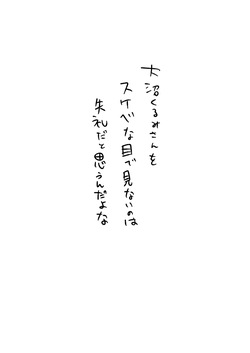 大沼くるみさんを
スケベな目で見ないのは
失礼だと思うんだよな